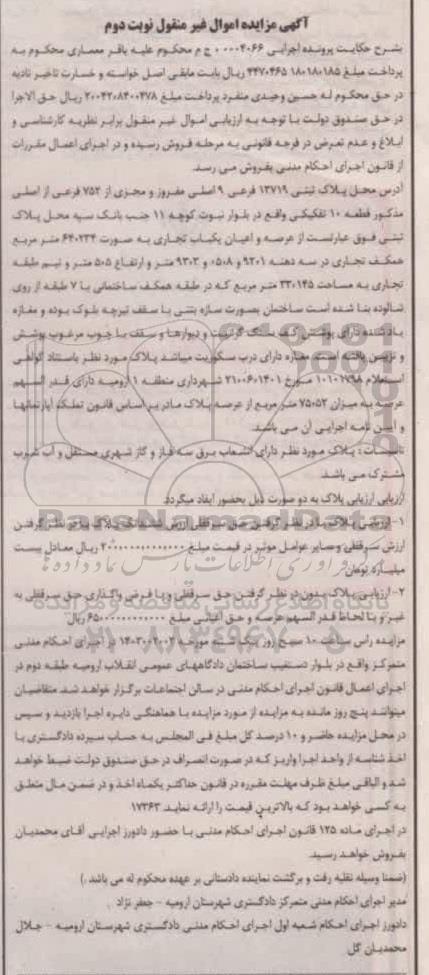 آگهی مزایده اموال غیر منقول نوبت دوم
بشرح حکایت پرونده اجرایی ۰۰۰۰۴۰۶۶ ج م محکوم علیه باقر معماری محکوم به
پرداخت مبلغ ۱۸۰۱۸۰۱۸۵ ۴۴۷۰۴۶۵ ریال بابت مابقی اصل خواسته و خسارت تاخیر تادیه
در حق محکوم له حسین وحیدی منفرد پرداخت مبلغ ۲۰۰۴۲۰۸۴۰۰۴۷۸ ریال حق الاجرا
در حق صندوق دولت با توجه به ارزیابی اموال غیر منقول برابر نظریه کارشناسی و
ابلاغ و عدم تعرض در فرجه قانونی به مرحله فروش رسیده و در اجرای اعمال مقررات
از قانون اجرای احکام مدنی بفروش می رسد.
آدرس محل پلاک ثبتی ۱۳۷۱۹ فرعی ۹ اصلی مفروز و مجزی از ۷۵۲ فرعی از اصلی
مذکور قطعه ۱۰ تفکیکی واقع در بلوار نبوت کوچه ۱۱ جنب بانک سپه محل پلاک
ثبتی فوق عبارتست از عرصه و اعیان یکباب تجاری به صورت ۶۴۰۲۳۴ متر مربع
همکف تجاری در سه دهنه ۹۲۰۱ و ۰۵۰۸ و ۹۳۰۳ متر و ارتفاع ۵۰۵ متر و نیم طبقه
تجاری به مساحت ۳۳۰۱۴۵ متر مربع که در طبقه همکف ساختمانی با ۷ طبقه از روی
شالوده بنا شده است ساختمان بصورت سازه بتنی با سقف تیرچه بلوک بوده و مغازه
یاد شده دارای پوشش کف بسنگ گرانیت و دیوارها و سقف با چوب مرغوب پوشش
و تزیین یافته است مغازه دارای درب سکوریت میباشد پلاک مورد نظر باستناد گواهی
استعلام ۱۰۱۰۱۷۹۸ مورخ ۲۱۰۰۶۰۱۴۰۱ شهرداری منطقه ۱ ارومیه دارای قدر السهم
عرصه به میزان ۷۵۰۵۲ متر مربع از عرصه پلاک مادر بر اساس قانون تملک آپارتمانها
و آیین نامه اجرایی آن می باشد.
تاسیسات : پلاک مورد نظر دارای انشعاب برق سه فاز و گاز شهری مستقل و آب شرب
مشترک می باشد.
ارزیابی ارزیابی پلاک به دو صورت ذیل بحضور ایفاد میگردد.
۱- ارزیابی پلاک با در نظر گرفتن حق سرقفلی ارزش ششدانگ پلاک با در نظر گرفتن
ارزش سرقفلی و سایر عوامل موثر در قیمت مبلغ ۲۰۰۰۰۰۰۰۰۰۰۰۰ ریال معادل بیست
میلیارد تومان
۲- ارزیابی پلاک بدون در نظر گرفتن حق سرقفلی و با فرض واگذاری حق سرقفلی به
غیر و با لحاظ قدر السهم عرصه و حق اعیانی مبلغ ۶۵۰۰۰۰۰۰۰۰۰۰۰ ریال
مزایده راس ساعت ۱۰ صبح روز یک شنبه مورخه ۱۴۰۳۰۰۲۰۰۲ در اجرای احکام مدنی
متمرکز واقع در بلوار دستغیب ساختمان دادگاههای عمومی انقلاب ارومیه طبقه دوم در
اجرای اعمال قانون اجرای احکام مدنی در سالن اجتماعات برگزار خواهد شد متقاضیان
میتوانند پنج روز مانده به مزایده از مورد مزایده با هماهنگی دایره اجرا بازدید و سپس
در محل مزایده حاضر و ۱۰ درصد کل مبلغ فی المجلس به حساب سپرده دادگستری با
اخذ شناسه از واحد اجرا واریز که در صورت انصراف در حق صندوق دولت ضبط خواهد
شد و الباقی مبلغ ظرف مهلت مقرره در قانون حداکثر یکماه اخذ و در ضمن مال متعلق
به کسی خواهد بود که بالاترین قیمت را ارائه نماید. ۱۷۳۶۳
در اجرای ماده ۱۲۵ قانون اجرای احکام مدنی با حضور دادورز اجرایی آقای محمدیان
بفروش خواهد رسید.
(ضمنا وسیله نقلیه رفت و برگشت نماینده دادستانی بر عهده محکوم له می باشد.)
مدیر اجرای احکام مدنی متمرکز دادگستری شهرستان ارومیه - جعفر نژاد
دادورز اجرای احکام شعبه اول اجرای احکام مدنی دادگستری شهرستان ارومیه - جلال
محمدیان گل